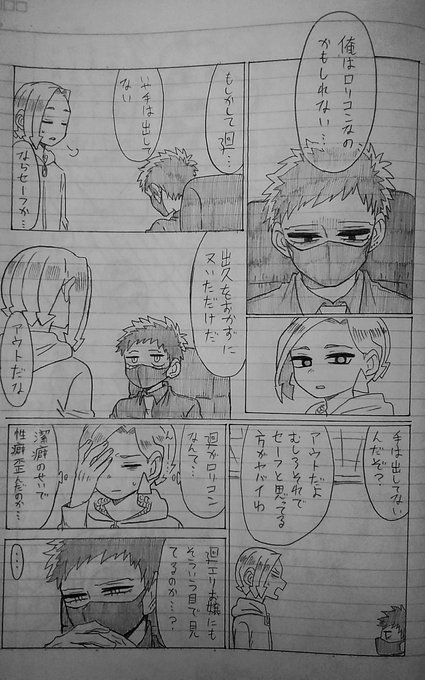 俺はロリコンなの
かもしれない…
もしかして廻…
いや手は出して
ない
ならセーフか…
出久をおかずに
ヌいただけだ
アウトだな
手は出してない
んだぞ?
アウトだよ
むしろそれで
セーフと思ってる
方がヤバイわ
廻がロリコン
なんて…
潔癖のせいで
性癖歪んだのか…
廻エリお嬢にも
そういう目で見
てるのか…?
…